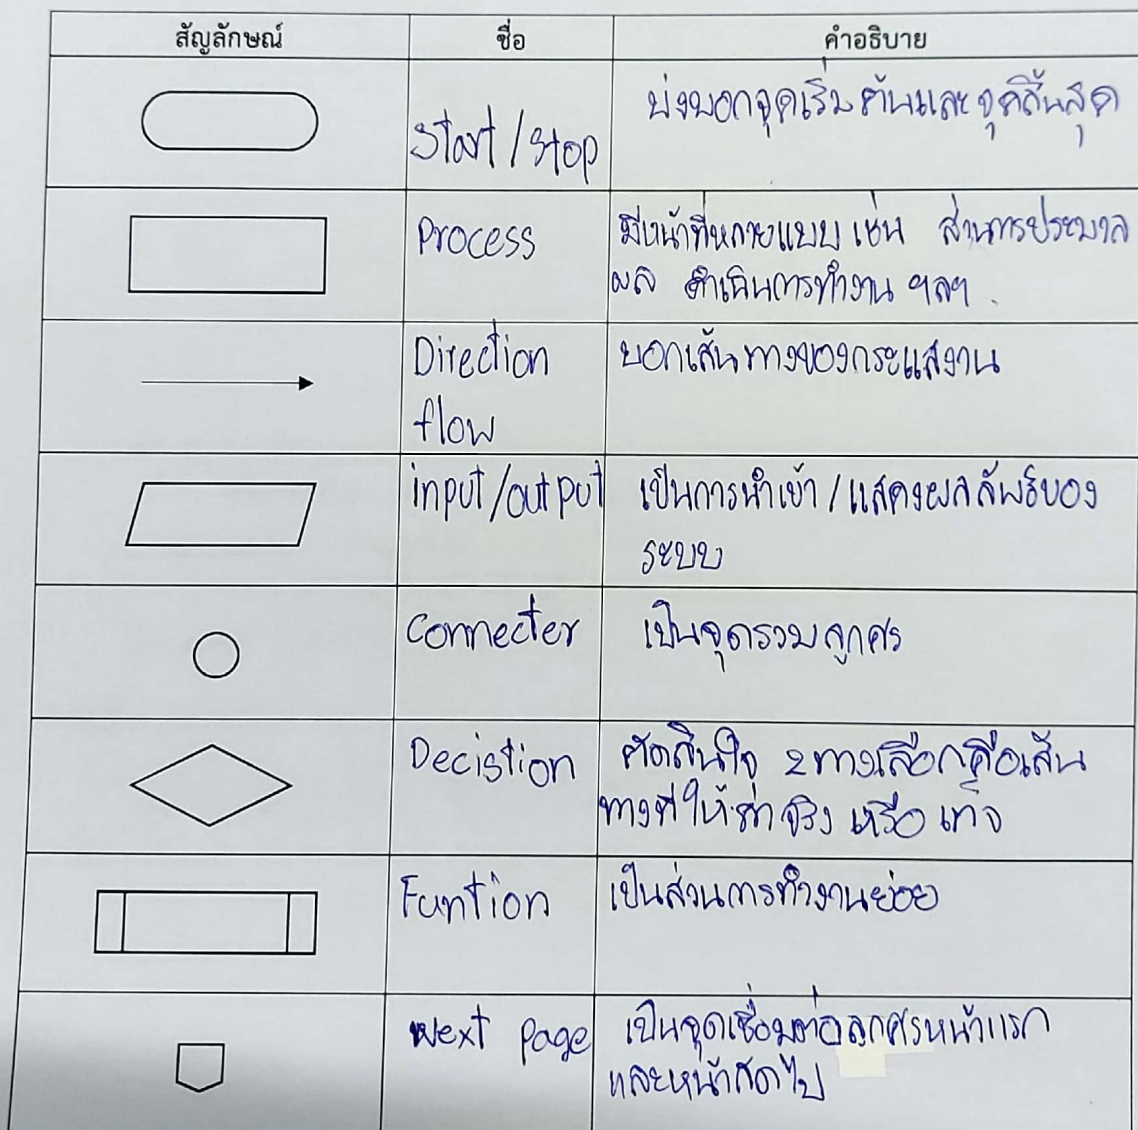 สัญลักษณ์ ชื่อ คำอธิบาย
บ่งบอกจุดเริ่มต้นและจุดสิ้นสุด
Start / Stop
Process มีหน้าที่หลายแบบ เช่น ส่วนการประมวล
ผล ดำเนินการทำงาน ฯลฯ
Direction บอกเส้นทางของกระแสงาน
flow
input/output เป็นการนำเข้า / แสดงผลลัพธ์ของ
ระบบ
Connecter เป็นจุดรวมลูกศร
Decistion ตัดสินใจ 2 ทางเลือกคือเส้น
ทางที่ให้ค่าจริง หรือ เท็จ
Funtion เป็นส่วนการทำงานย่อย
Next page เป็นจุดเชื่อมต่อลูกศรหน้าแรก
และหน้าถัดไป